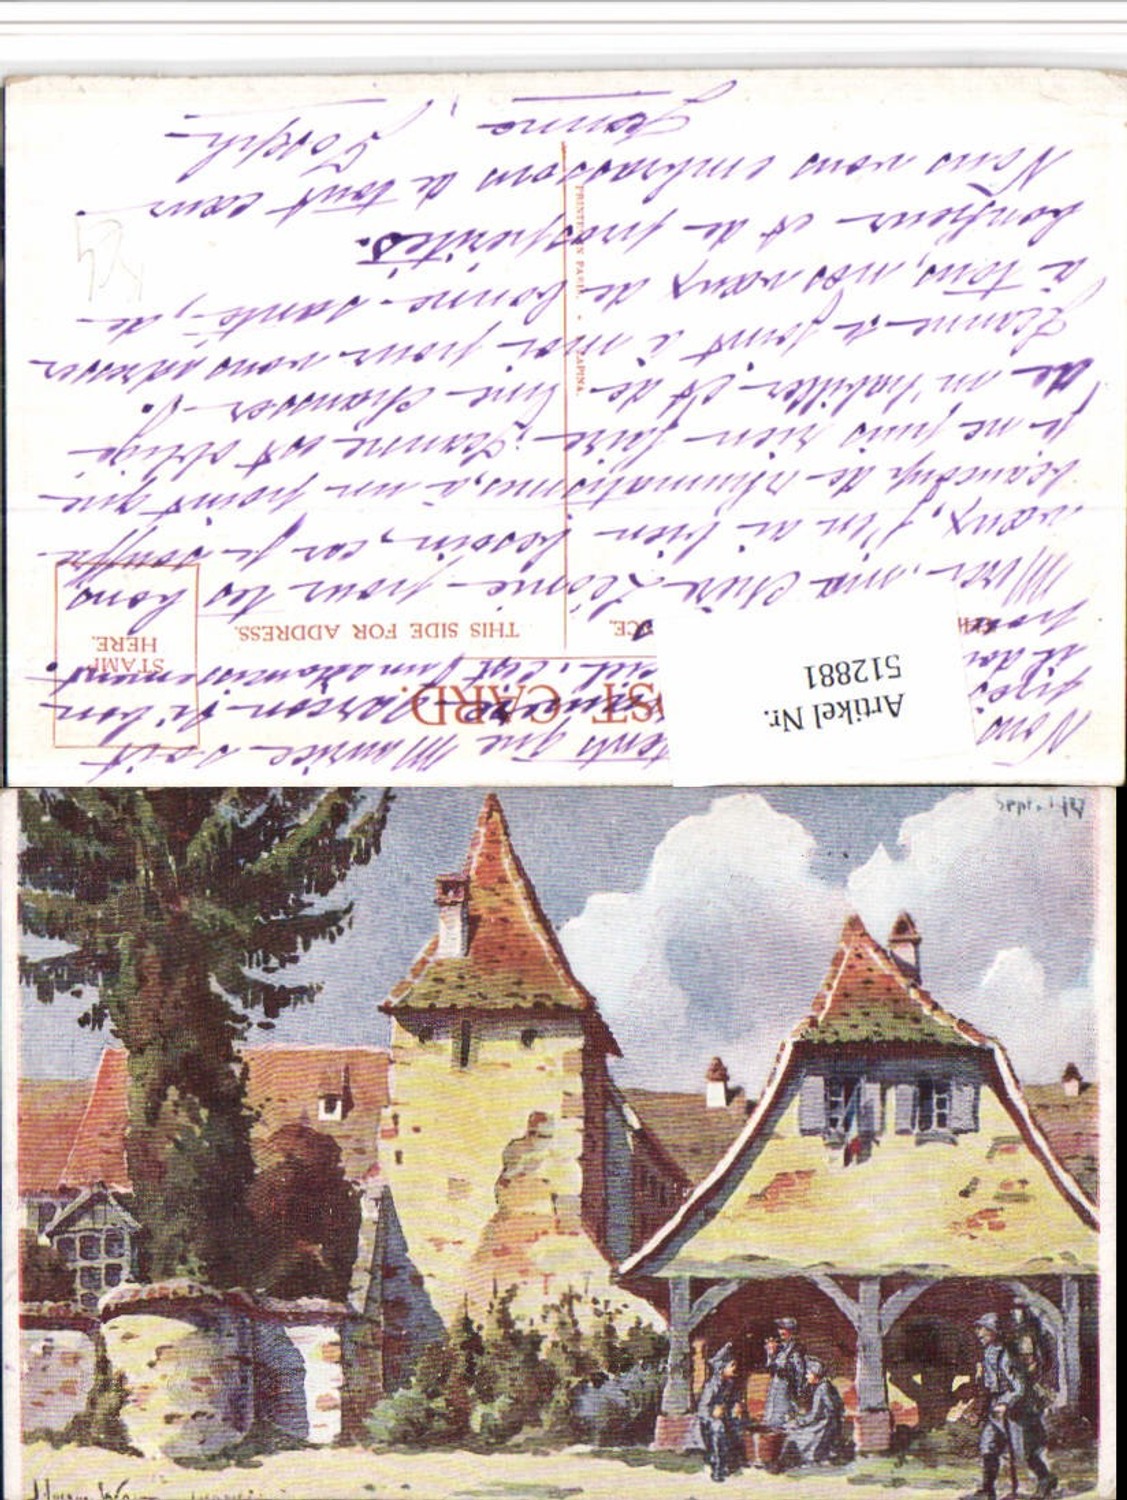 Artikel Nr.
512881
POST CARD.
THIS SIDE FOR ADDRESS.
STAMP
HERE.
PRINTED IN PARIS. • LAPINA.
Nous tente que Maurice soit
garçon si bon
il c'est un adoucissement
pour
Merci, ma chère Léonie pour tes bons
vœux, j'en ai bien besoin, car je souffre
beaucoup de rhumatismes, à un point que
je ne puis rien faire, Jeanne est obligé
de m'habiller et de me chausser.
Jeanne se joint à moi pour vous adresser
à tous, nos vœux de bonne santé, de
bonheur et de prospérités.
Nous vous embrassons de tout cœur
Jeanne, Joseph